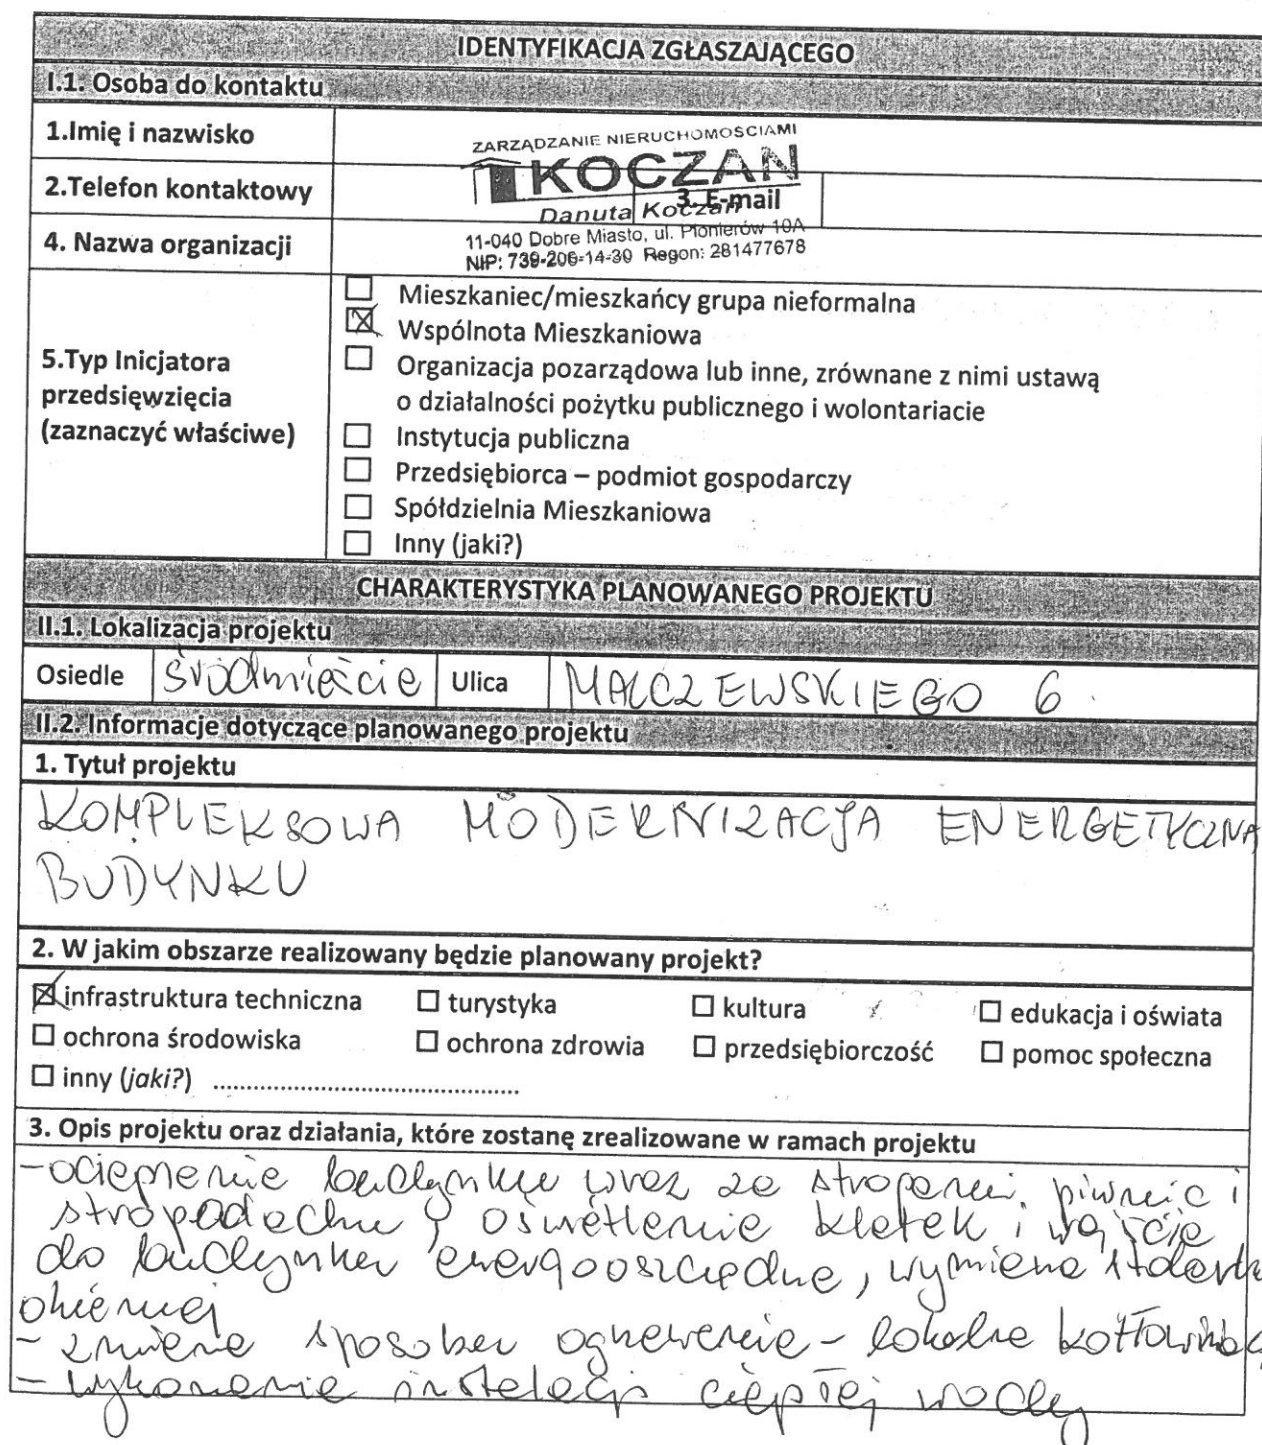 IDENTYFIKACJA ZGŁASZAJĄCEGO
I.1. Osoba do kontaktu
1.Imię i nazwisko
ZARZĄDZANIE NIERUCHOMOSCIAMI
KOCZAN
2.Telefon kontaktowy
3. E-mail
Danuta Koczan
4. Nazwa organizacji
11-040 Dobre Miasto, ul. Pionierów 10A
NIP: 739-206-14-30 Regon: 281477678
5.Typ Inicjatora
przedsięwzięcia
(zaznaczyć właściwe)
☐ Mieszkaniec/mieszkańcy grupa nieformalna
☒ Wspólnota Mieszkaniowa
☐ Organizacja pozarządowa lub inne, zrównane z nimi ustawą
o działalności pożytku publicznego i wolontariacie
☐ Instytucja publiczna
☐ Przedsiębiorca – podmiot gospodarczy
☐ Spółdzielnia Mieszkaniowa
☐ Inny (jaki?)
CHARAKTERYSTYKA PLANOWANEGO PROJEKTU
II.1. Lokalizacja projektu
Osiedle Śródmieście Ulica MALCZEWSKIEGO 6
II.2. Informacje dotyczące planowanego projektu
1. Tytuł projektu
KOMPLEKSOWA MODERNIZACJA ENERGETYCZNA
BUDYNKU
2. W jakim obszarze realizowany będzie planowany projekt?
☒ infrastruktura techniczna ☐ turystyka ☐ kultura ☐ edukacja i oświata
☐ ochrona środowiska ☐ ochrona zdrowia ☐ przedsiębiorczość ☐ pomoc społeczna
☐ inny (jaki?) ..........................................
3. Opis projektu oraz działania, które zostanę zrealizowane w ramach projektu
- ocieplenie budynku wraz ze stropami piwnic i
stropodachu, oświetlenie klatek i wejście
do budynku energooszczędne, wymiana
okiennej
- zmiana sposobu ogrzewania - lokalne
- wykonanie instalacji ciepłej wody